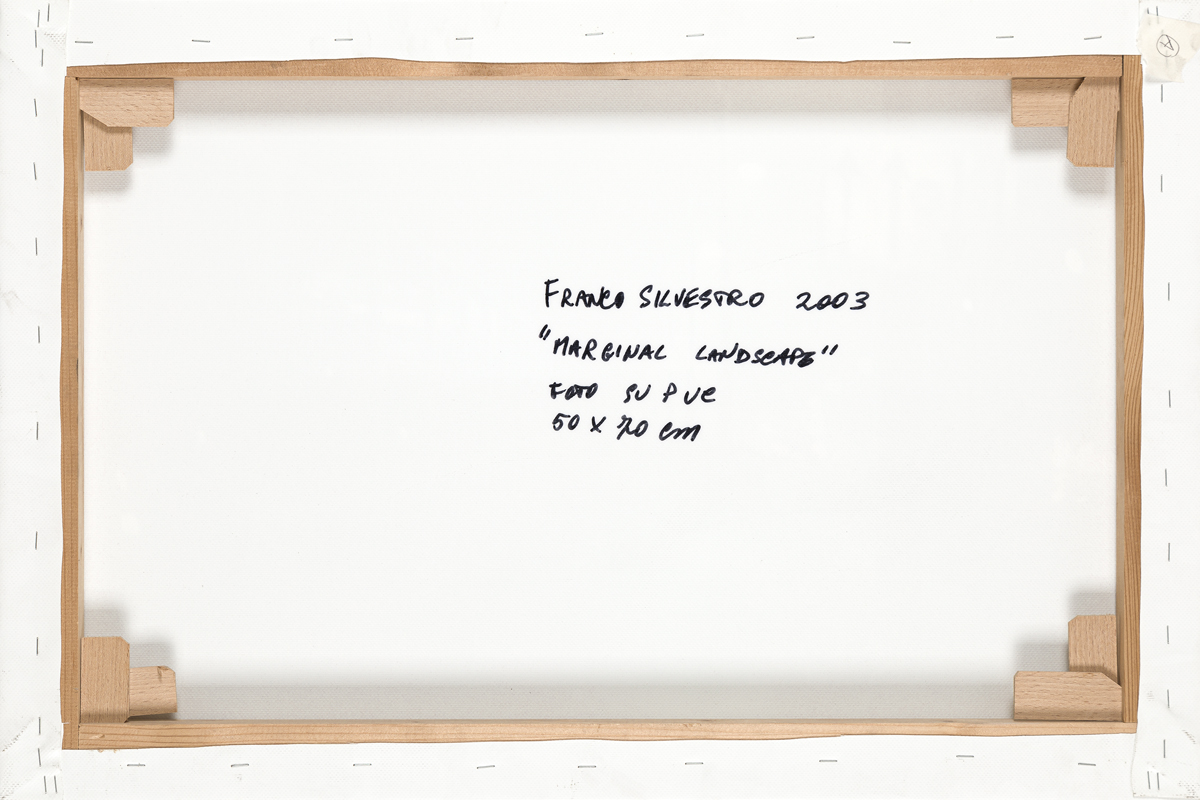 FRANCO SILVESTRO 2003
"MARGINAL LANDSCAPE"
FOTO SU PVC
50 X 70 cm